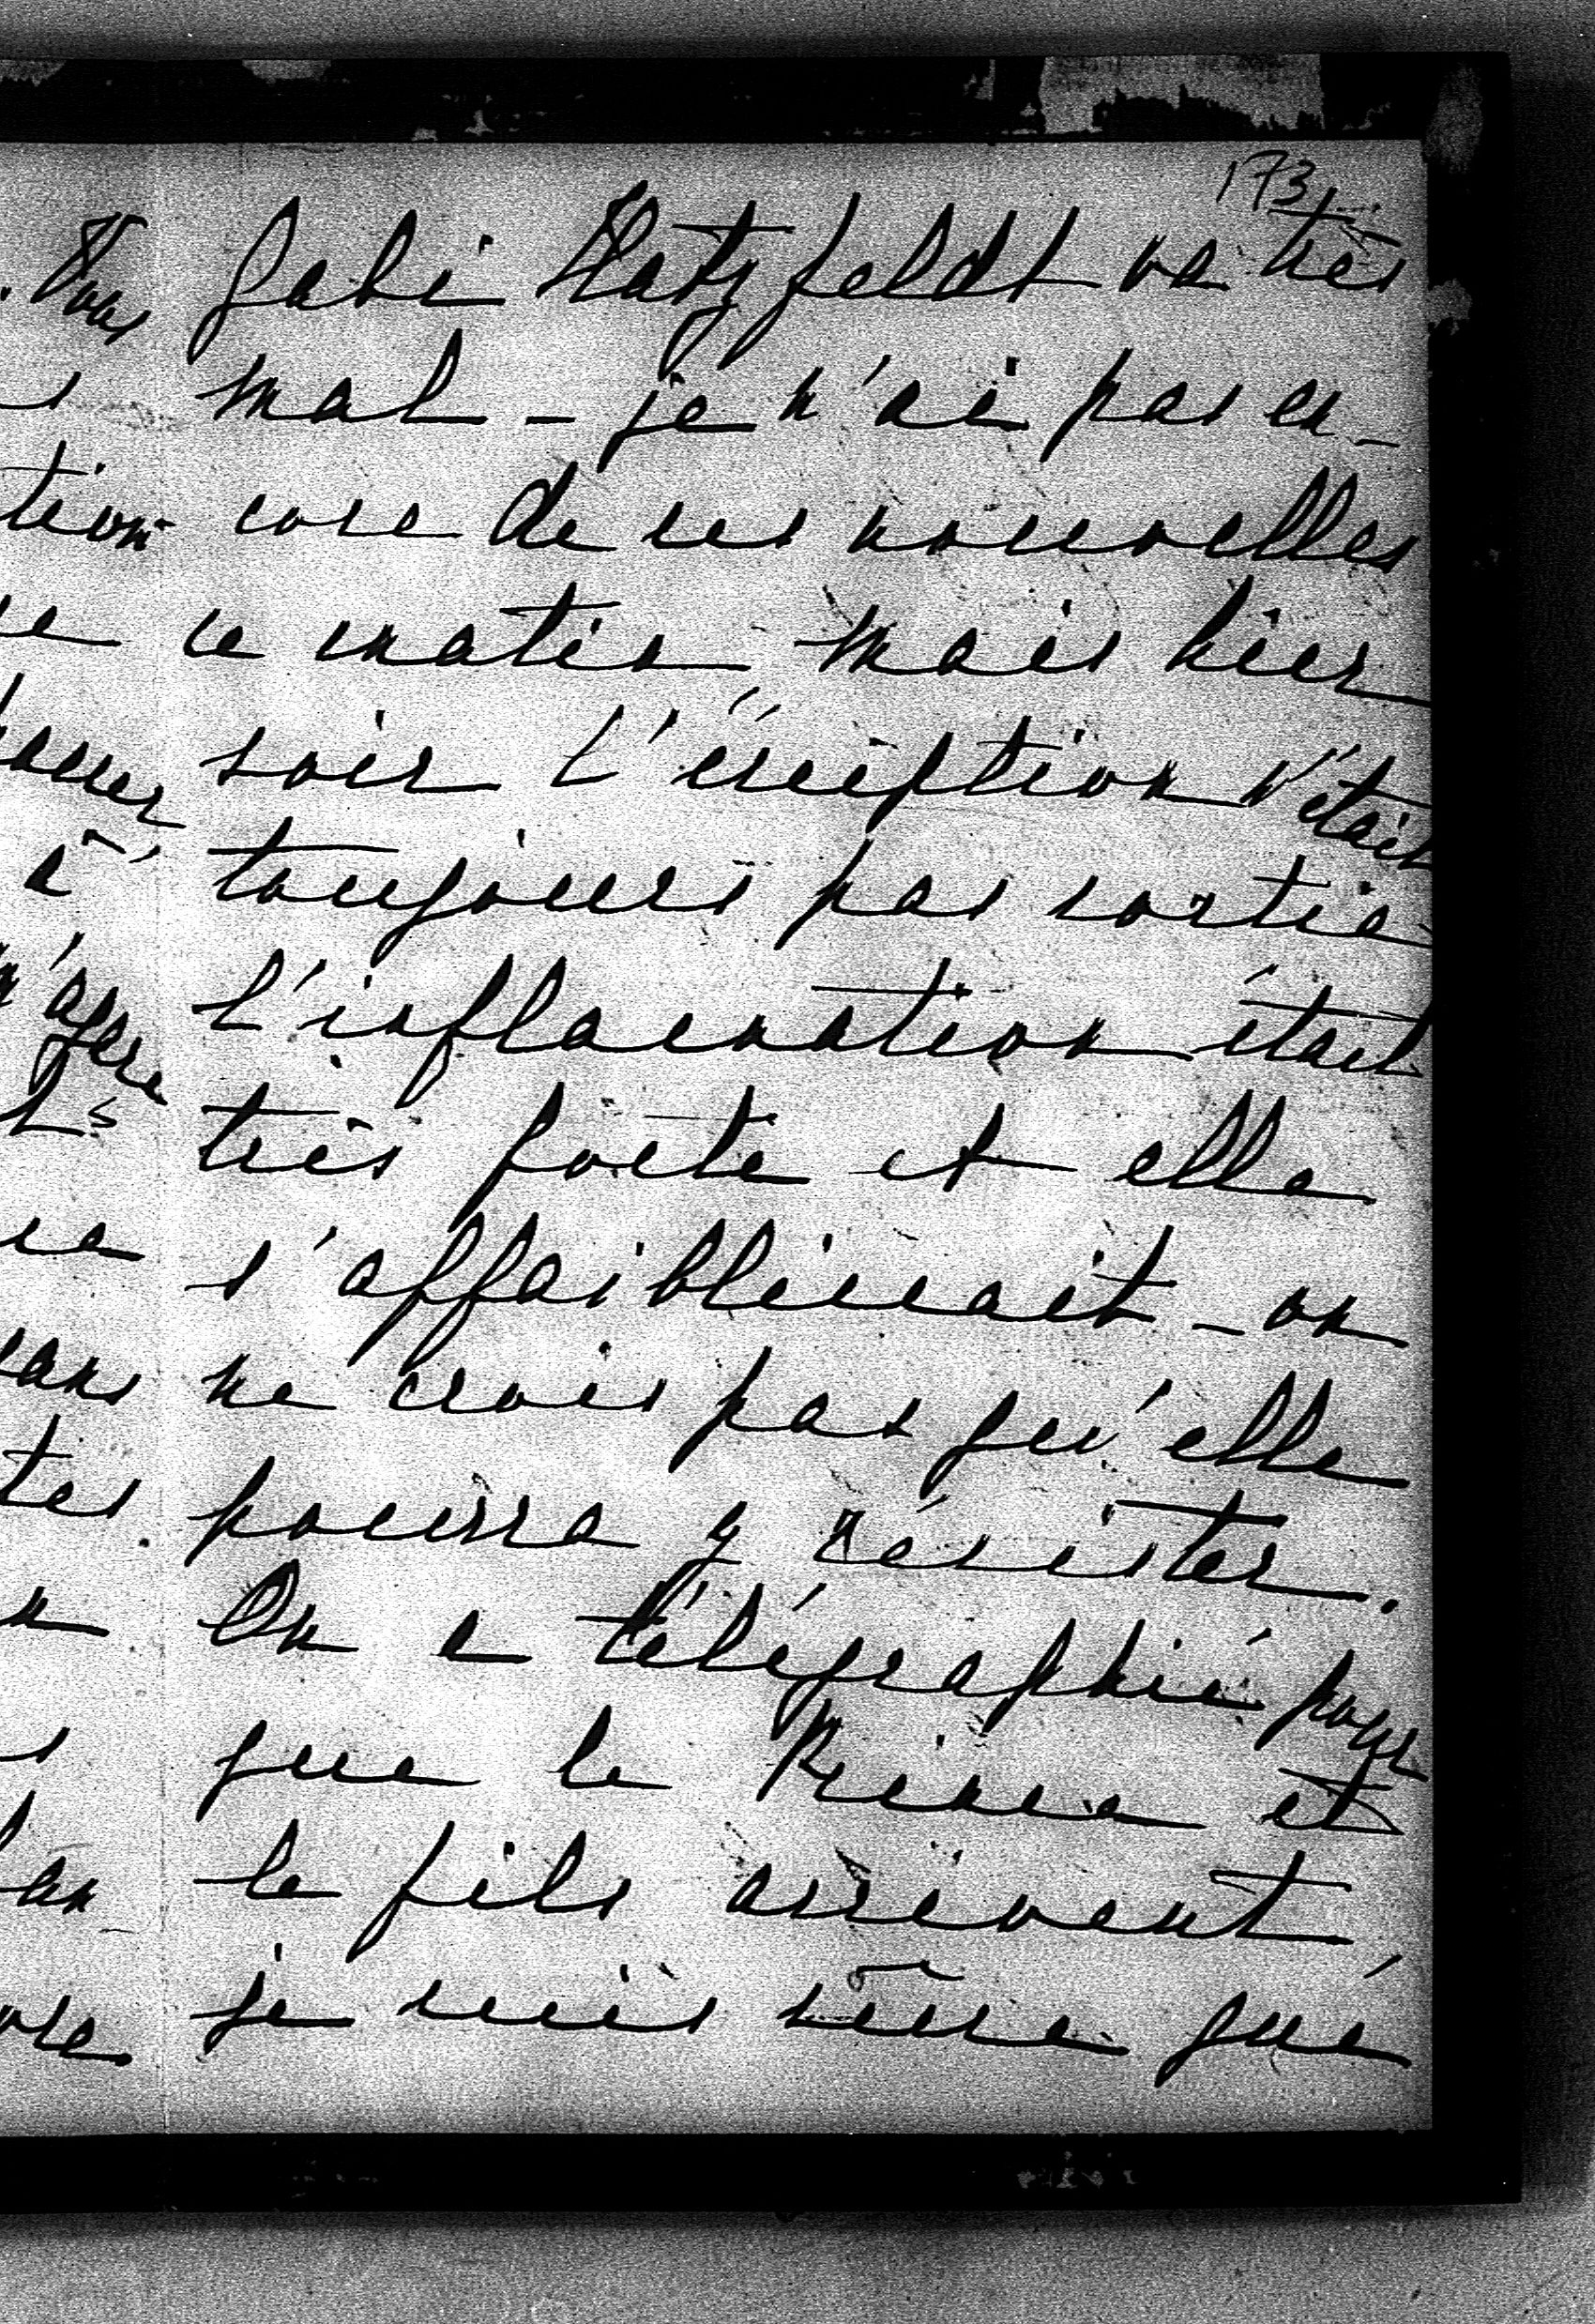 173
Gabi Hatzfeldt va très
mal – je n'ai pas en-
core de ses nouvelles
ce matin, mais hier
soir l'éruption n'était
toujours pas sortie
l'inflamation était
très forte et elle
s'affaiblissait – on
ne crois pas qu'elle
pourra y résister.
On a télégraphié pour
que le Prince et
le fils arrivent,
je suis sûre que